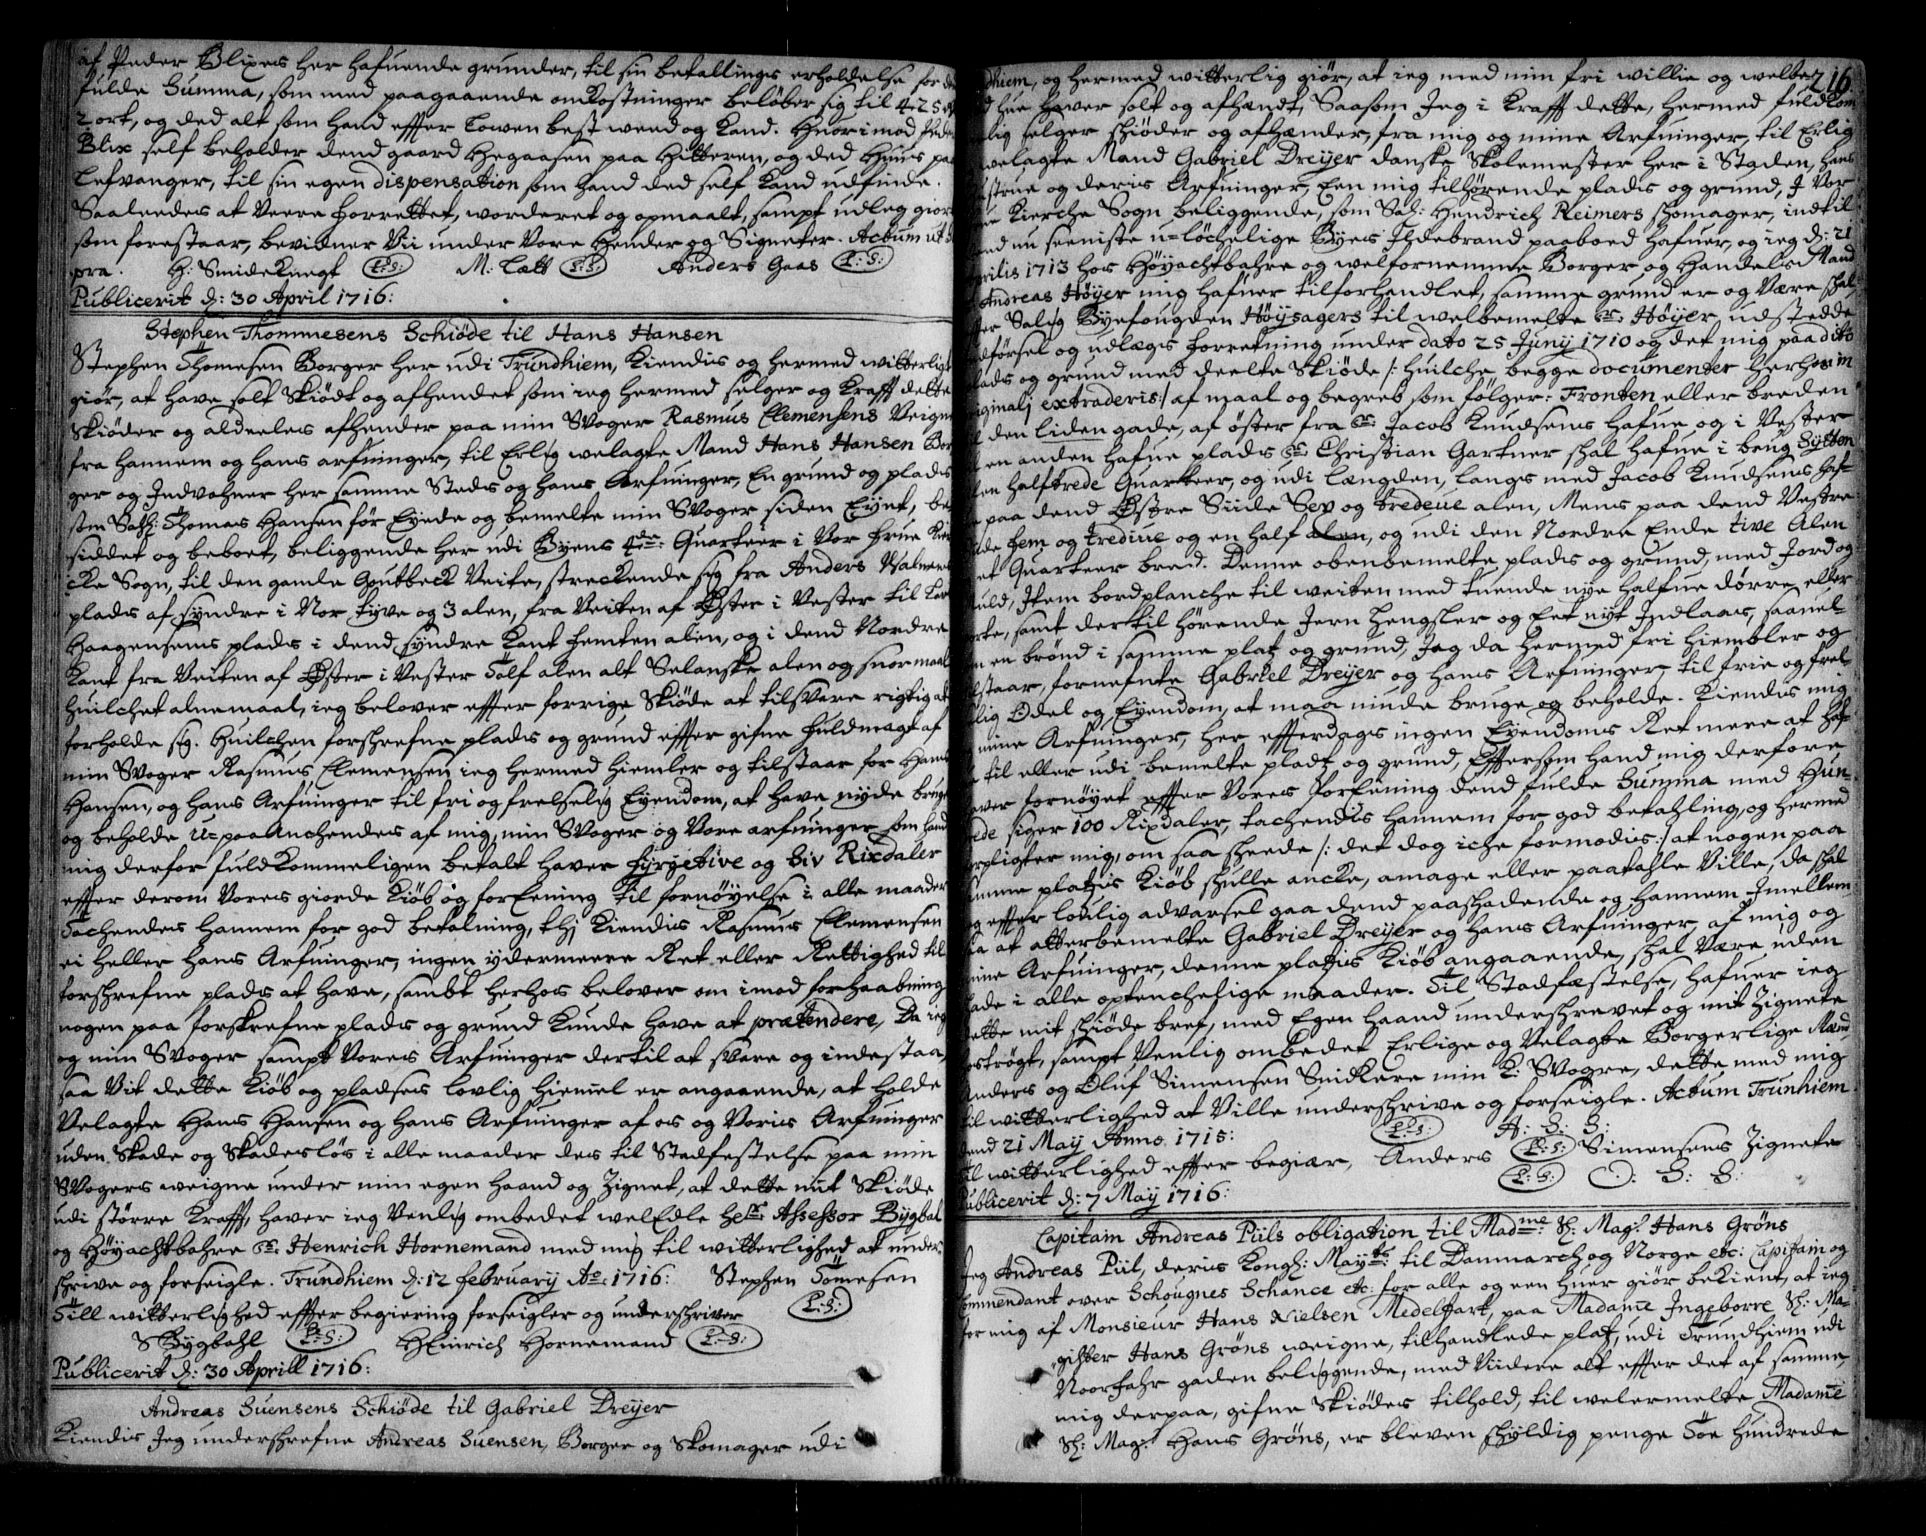 af Peder Blixes her hafuende grunder, til sin betallings erholdelse for den
fulde Summa, som med paagaaende omkostninger beløber sig til 425 rd
2 ort, og ded alt som hand effter Lowen best weed og kand. Huorimod Peder
Blix self beholder dend gaard Hegaasen paa Hitteren, og ded Huus paa
Lefvanger, til sin egen dispensation som hand ded self kand udfinde.
Saaleedes at Veere forrettet, worderet og opmaalt, sampt udleg giort
som forestaar, bevidner Vii under Vore Hender og Signeter. Actum ut su
pra. H: Smidt Knugt L:S: M: Lætt L:S: Anders Gaas L:S:
Publicerit d: 30 April 1716:
Stephen Thommesens Schiøde til Hans Hansen
Stephen Thomesen Borger her udi Trundhiem, Kiendis og hermed witterligt
giør, at have solt Skiødt og afhendet som ieg hermed selger og Krafft dette
Skiøder og aldeeles afhender paa min Svoger Rasmus Clemensens Veigne
fra hannem og hans arfuinger, til Erlig welagte Mand Hans Hansen Bor
ger og Indvohner her samme Steds og hans Arfuinger, En grund og plads
som Sahl: Thomas Hansen før Eyede og bemelte min Svoger siden Eyet, be
siddet og beboet, beliggende her udi Byens 4de: Quarteer i Vor frue Kir
cke Sogn, til den gamle Goutbeck Veite, streckende sig fra Anders Valmers
plads af syndre i Nor tyve og 3 alen, fra Veiten af Øster i Vester til Lars
Haagensens plads i dend syndre Kant femten alen, og i dend Nordre
Kant fra Veiten af Øster i Vester Tolf alen alt Selanske alen og snormaal
huilchet alnemaal, ieg belover effter forrige Skiøde at tilsvare rigtig at
forholde sig. Huilchen forschrefne plads og grund effter gifne fuldmagt af
min Svoger Rasmus Clemensen ieg hermed hiemler og tilstaar for Hans
Hansen, og hans Arfuinger til fri og frelselig Eyendom, at have nyde bruge
og beholde U-paaAnchendes af mig, min Svoger og Vore arfuinger som hand
mig derfor fuldkommeligen betalt haver fyrgetive og Siv Rixdaler
effter derom Vores giorde Kiøb og forEening til fornøyelse i alle maader
Tachendes hannem for god betalning, thj Kiendis Rasmus Clemensen
ei heller hans Arfuinger, ingen ydermeere Ret eller Rettighed til
forschrefne plads at have, sambt herhos belover om imod forhaabning
nogen paa forskrefne plads og grund Kunde have at prætendere, Da ieg
og min Svoger sampt Vores Arfuinger dertil at svare og indestaa
saa Vit dette Kiøb og pladses lovlig hiemel er angaaende, at holde
Velagte Hans Hansen og hans Arfuinger af os og Voris Arfuinger
uden Skade og Skadesløs i alle maader des til Stadfestelse paa min
Svogers weigne under min egen haand og Zignet, at dette mit Skiøde
udi større Krafft, haver ieg Venlig ombedet welEdle Hr: Assessor Bygbal
og Høyachtbahre Sr: Henrich Hornemand med mig til witterlighed at under
schrive og forseigle. Trundhiem d: 12 february Ao: 1716: Stephen Tomesen
Till witterlighed effter begiering forseigler og underschriver L:S:
S Bygbahl L:S: HHinrich Hornemand L:S:
Publicerit d: 30 Aprill 1716:
Andreas Suensens Schiøde til Gabriel Dreyer
Kiendis Jeg underschrefne Andreas Suensen, Borger og Skomager udi
216
dhiem, og hermed witterlig giør, at ieg med min fri willie og welbe
hue haver solt og afhændt, Saasom Jeg i Krafft dette, hermed fuldkom
lig selger schiøder og afhænder, fra mig og mine Arfuinger, til Erlig
welagte Mand Gabriel Dreyer danske Skolemester her i Staden, hans
ustrue og deris Arfuinger, Een mig tilhørende plads og grund, J Vor
ue Kierche Sogn beliggende, som Sahl: Hendrich Reimers Skomager, indtil
end nu seeniste u-løchelige Byes Ildebrand paaboed hafuer, og ieg d: 21
prilis 1713 hos Høyachtbahre og welfornemme Borger og Handelsmand
Andreas Høyer mig hafuer tilforhandlet, samme grund er og Være skal
ffter Salig Byefougden Høysagers til welbemelte Sr: Høyer udstedde
dførsel og udlægs forretning under dato 25 Junij 1710 og det mig paa dito
lads og grund med deelte Skiøde /: huilche begge documenter herhos in
iginalj extraderis :/ af maal og begreb som følger: Fronten eller breden
l den liden gade, af øster fra Sr: Jacob Knudsens hafue og i Vester
en anden hafue plads Sr: Christian Gartner skal hafue i brug Sytten
len halftrede Quarteer, og udi Længden, langs med Jacob Knudsens haf
paa dend Østre Siide Sex og tredeue alen, Mens paa dend Vestre
ide fem og trediue og en half alen, og udi den Nordre Ende tive Alen
et Quarteer bred. Denne obenbemelte plads og grund, med Jord og
uld, Item bordplanche til weiten med tuende nye halfue dørre eller
orte, samt dertil hørende Jern hengsler og Eet nyt Indlaas, saavel
m en brønd i samme plat og grund, Jeg da hermed fri hiembler og
lstaar, fornefnte Gabriel Dreyer og hans Arfuinger, til frie og frel
lig Odel og Eyendom, at maa niude bruge og beholde. Kiendis mig
mine Arfuinger, her effterdags ingen Eyendoms Ret mere at haf
til eller udi bemelte platz og grund, Effthersom hand mig derfore
aver fornøyet effter Vores forEening dend fulde Summa med Hun
ede siger 100 Rixdaler, tachendis hannem for god betahling, og hermed
orpligter mig, om saa skeede /: det dog iche formodis :/ at nogen paa
amme platzis Kiøb skulle ancke, amage eller paatahle Ville, da skal
eg effter lovlig advarsel gaa dend paaskadende og hannem Imellem
aa at atterbemelte Gabriel Dreyer og hans Arfuinger, af mig og
mine Arfuinger, denne platzis Kiøb angaaende, skal Være uden
kade i alle optenchelige maader. Til Stadfæstelse, hafuer ieg
dette mit schiøde bref, med Egen haand underschrevet og mit Zignete
estrøgt, sampt Venlig ombedet Erlige og Velagte Borgerlige Mænd
Anders og Oluf Simensen Snidkere min K: Svogre, dette med mig
til witterlighed at Ville underschrive og forseigle. Actum Trunhiem
dend 21 May Anno 1715: L:S: A: S: S:
til witterlighed effter begiær, Anders L:S: Simensens Zignete
L:S: O: S: S:
Publicerit d: 7 May 1716:
Capitain Andreas Piils obligation til Madme Sl: Magr. Hans Grøns
Jeg Andreas Piil, deris Kongl: Mayts: til Danmarch og Norge etc: Capitain og
Commendant over Schougnes Schance etc: for alle og een huer giør bekient, at ieg
ter mig af Monsieur Hans Nielsen Medelfart, paa Madame Ingeborre Sl: Ma
gister Hans Grøns weigne, tilhandlede platz, udi Trundhiem udi
Noorfahr gaden beliggende, med Viidere alt effter det af samme
mig derpaa, gifne Skiødes tilhold, til welermelte Madame
Sl: Magr. Hans Grøns, er bleven skyldig penge Toe Hundrede